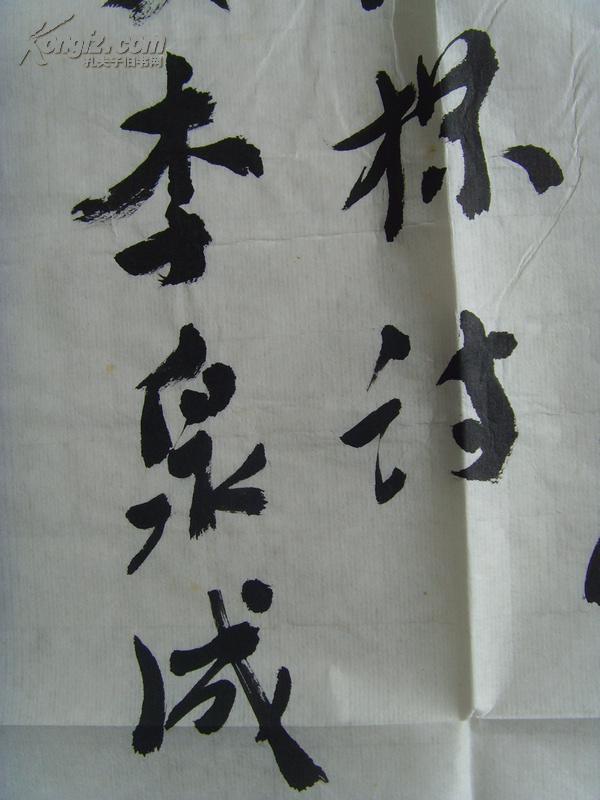 Kongfz.com
孔夫子旧书网
诗
李泉成